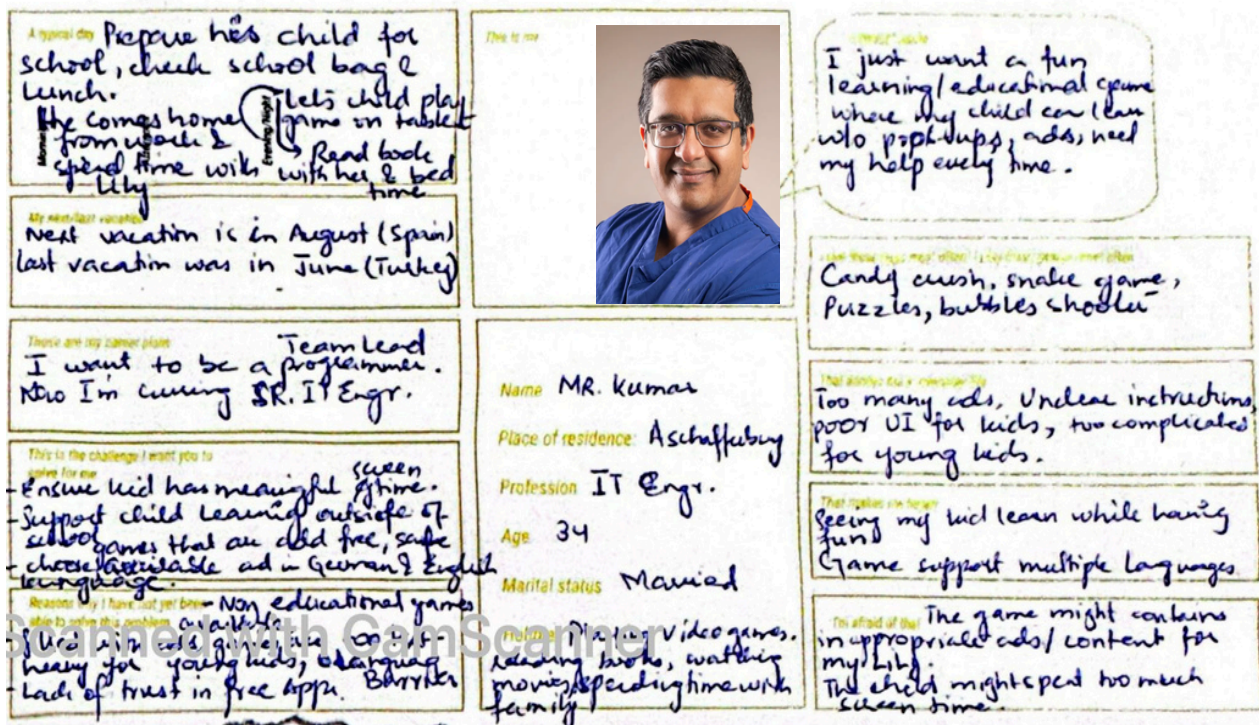 A typical day Prepare his child for
school, check school bag &
Lunch.
He comes home
from work &
spend time with
Lily
Lets child play
game on tablet
Read book
with her & bed
time
Evening/Night
My next/last vacation
Next vacation is in August (Spain)
last vacation was in June (Turkey)
These are my career plans Team Lead
I want to be a programmer.
Now I'm SR. IT Engr.
This is the challenge I want you to
solve for me screen
- Ensure kid has meaningful time.
- Support child Learning outside of
school
games that are add free, safe
- available ad in German & English
language.
Reasons why I have not yet been
able to solve this problem
- Non educational games
available
heavy for young kids,
Barrier
- Lack of trust in free Apps.
This is me
Name MR. Kumar
Place of residence: Aschaffenburg
Profession IT Engr.
Age 34
Marital status Married
Playing video games.
reading books, watching
movies, spending time with
family
I just want a fun
learning/educational game
where my child can learn
w/o pop-ups, ads, need
my help every time.
Candy crush, snake game,
Puzzles, bubbles shooter
Too many ads, Unclear instructions,
poor UI for kids, too complicated
for young kids.
That makes me happy
Seeing my kid learn while having
fun
Game support multiple languages
I'm afraid of that The game might contains
inappropriate ads/content for
my Lily.
The child might spent too much
screen time.
Scanned with CamScanner